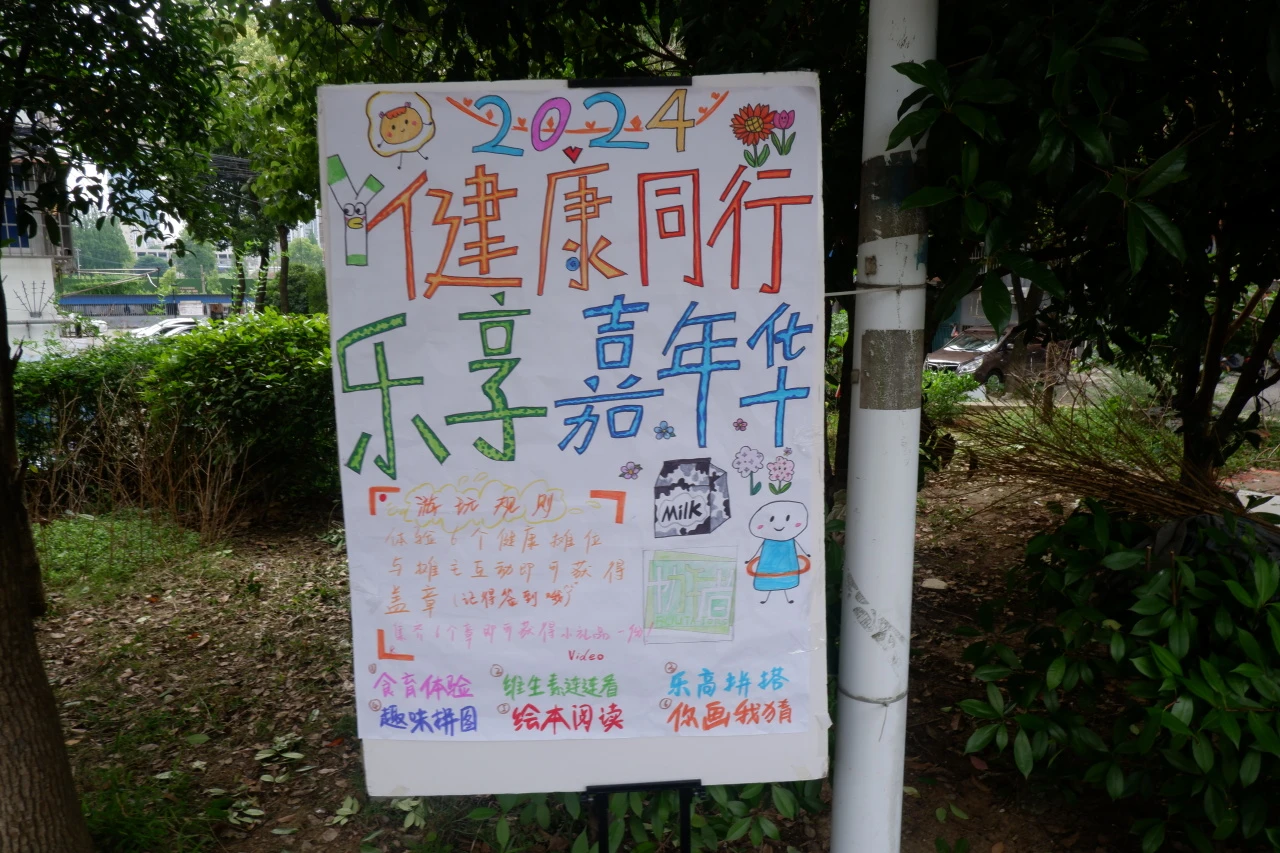 2024
健康同行
乐享 嘉年华
游玩规则
体验6个健康摊位
与摊主互动即可获得
盖章(记得签到哦)
集齐6个章即可获得小礼品一份!
Milk
Video
①食育体验 ②维生素连连看 ③乐高拼搭
④趣味拼图 ⑤绘本阅读 ⑥你画我猜